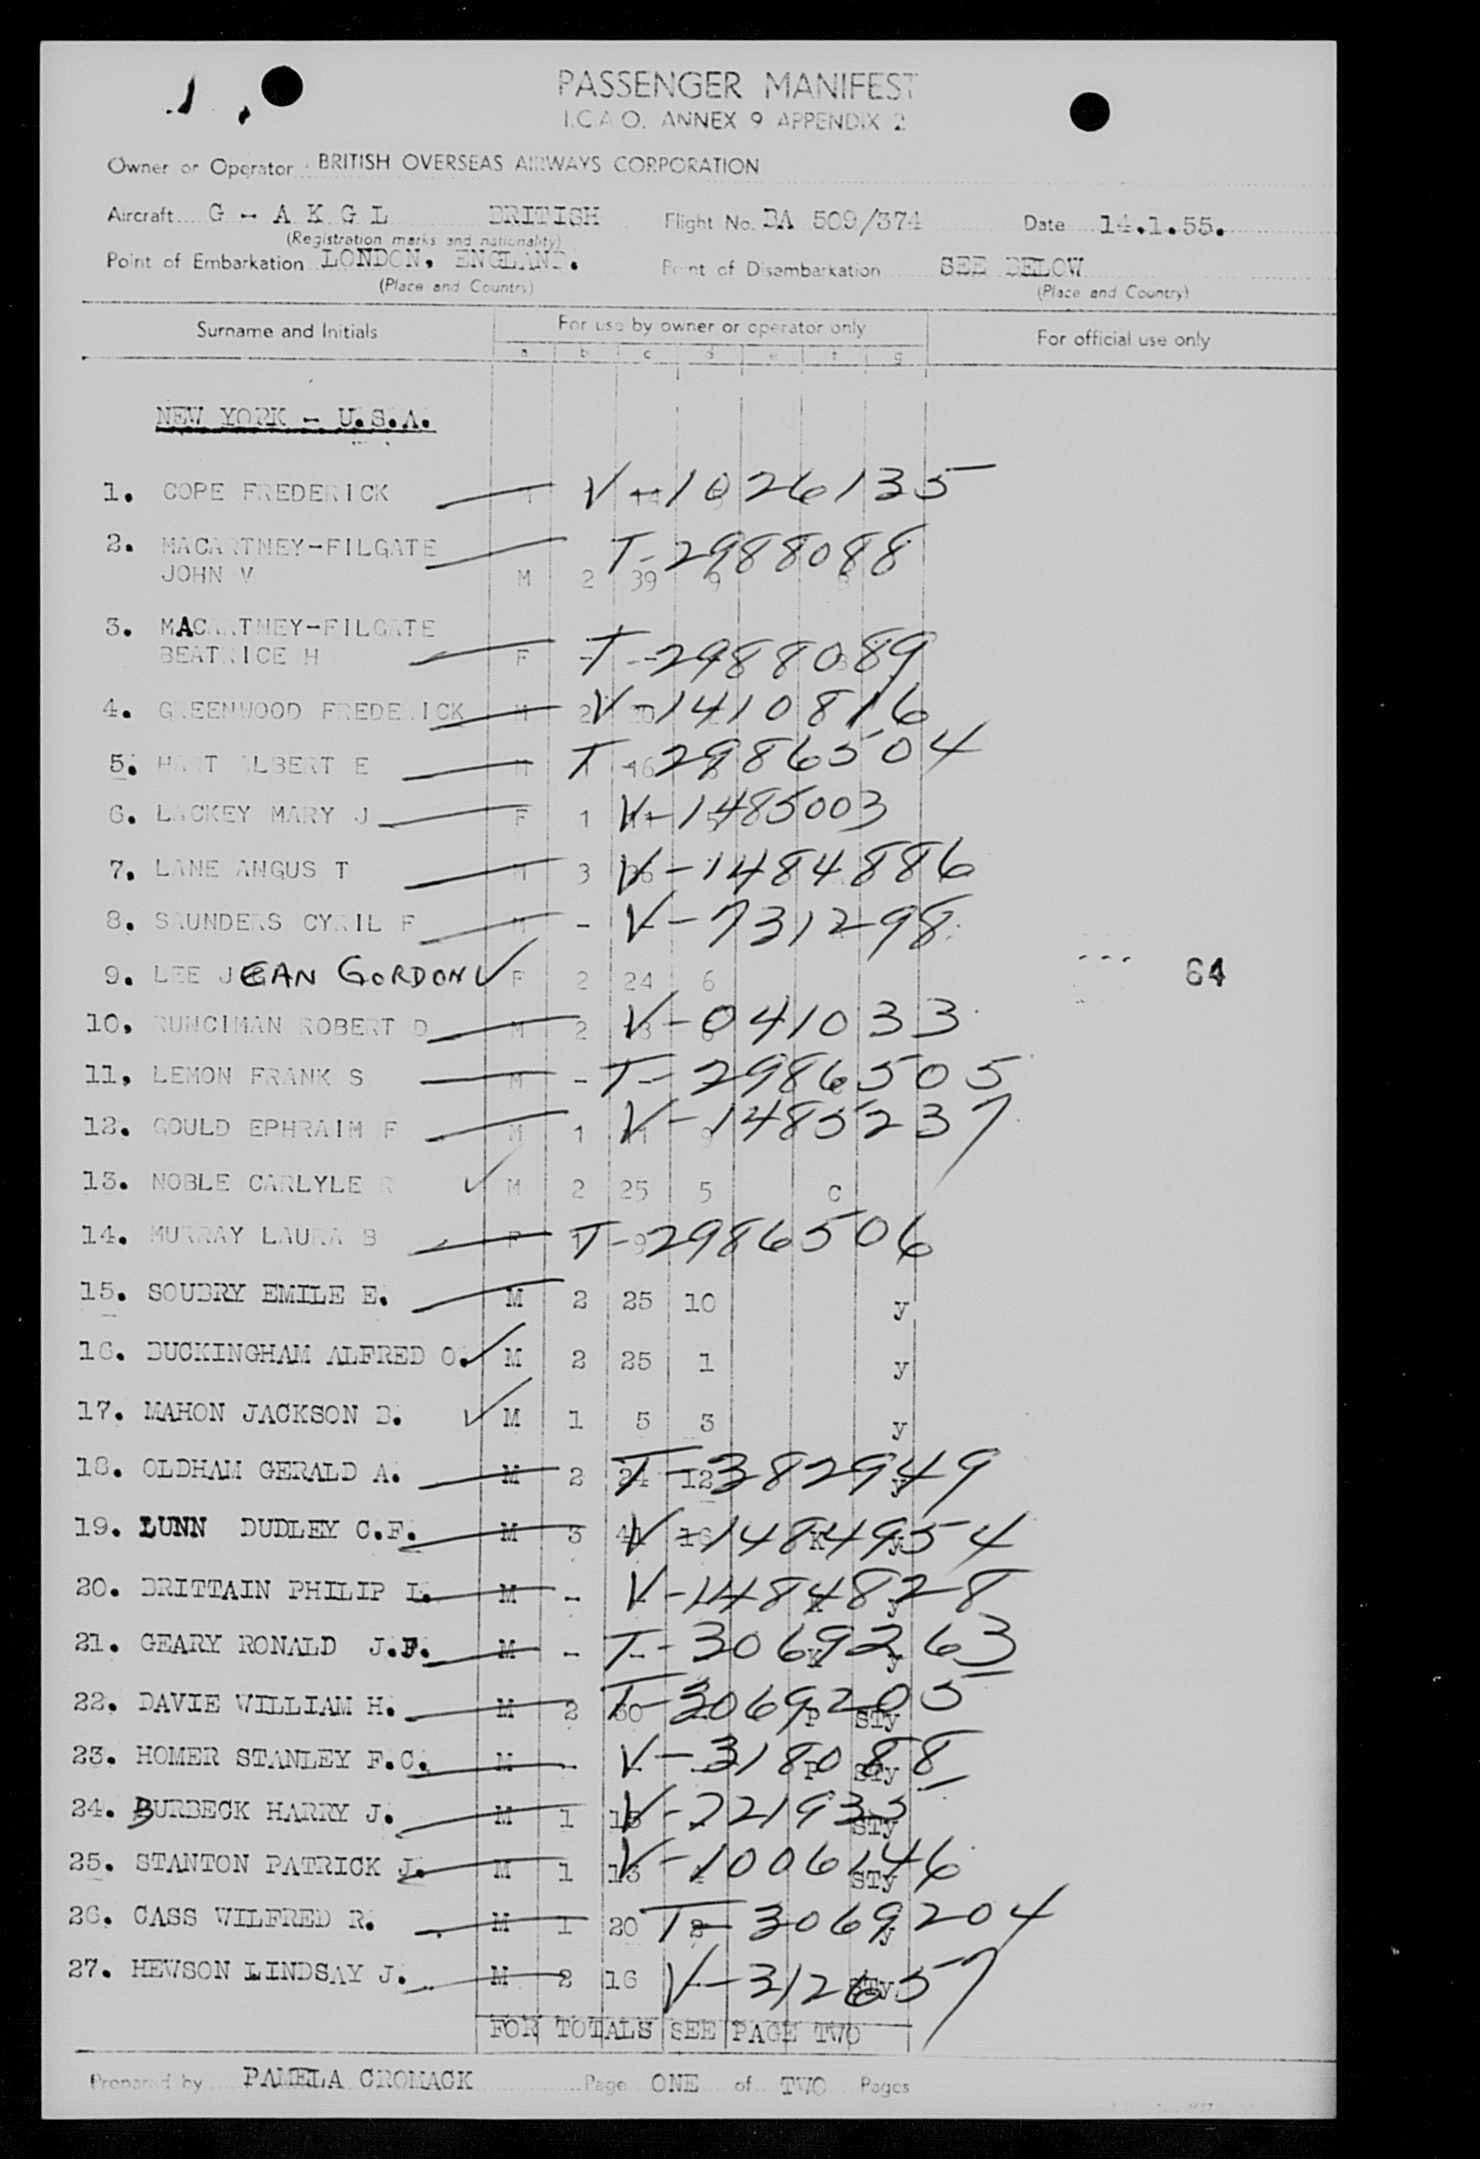 PASSENGER MANIFEST
I.C.A.O. ANNEX 9 APPENDIX 2
Owner or Operator BRITISH OVERSEAS AIRWAYS CORPORATION
Aircraft G - A K G L BRITISH Flight No. BA 509/374 Date 14.1.55.
(Registration marks and nationality)
Point of Embarkation LONDON, ENGLAND. Point of Disembarkation SEE BELOW
(Place and Country) (Place and Country)
Surname and Initials For use by owner or operator only For official use only
a b c d e f g
NEW YORK - U.S.A.
1. COPE FREDERICK V-1026135
2. MACARTNEY-FILGATE T-2988088
JOHN V M 2 39 9
3. MACARTNEY-FILGATE
BEATRICE H F - T-2988089
4. GREENWOOD FREDERICK M 2 V-1410816
5. HART ALBERT E M T-2986504
6. LACKEY MARY J F 1 V-1485003
7. LANE ANGUS T M 3 V-1484886
8. SAUNDERS CYRIL F M - V-731298
9. LEE JEAN GORDON ✓ F 2 24 6 64
10. RUNCIMAN ROBERT D M 2 V-041033
11. LEMON FRANK S M - T-2986505
12. GOULD EPHRAIM F M 1 V-1485237
13. NOBLE CARLYLE R ✓ M 2 25 5 C
14. MURRAY LAURA B F T-2986506
15. SOUBRY EMILE E. M 2 25 10 y
16. BUCKINGHAM ALFRED O. ✓ M 2 25 1 y
17. MAHON JACKSON B. ✓ M 1 5 3 y
18. OLDHAM GERALD A. M 2 24 12 T-382949 y
19. LUNN DUDLEY C.F. M 3 V-1484954 K y
20. BRITTAIN PHILIP L. M - V-1484828 y
21. GEARY RONALD J.F. M - T-3069263 K y
22. DAVIE WILLIAM H. M 2 T-3069205 P STy
23. HOMER STANLEY F.C. M - V-318088 P STy
24. BURBECK HARRY J. M 1 15 V-221933 STy
25. STANTON PATRICK J. M 1 13 V-1006146 STy
26. CASS WILFRED R. M 1 20 T-3069204 y
27. HEWSON LINDSAY J. M 2 16 V-312657 STy
FOR TOTALS SEE PAGE TWO
Prepared by PAMELA CROMACK Page ONE of TWO Pages